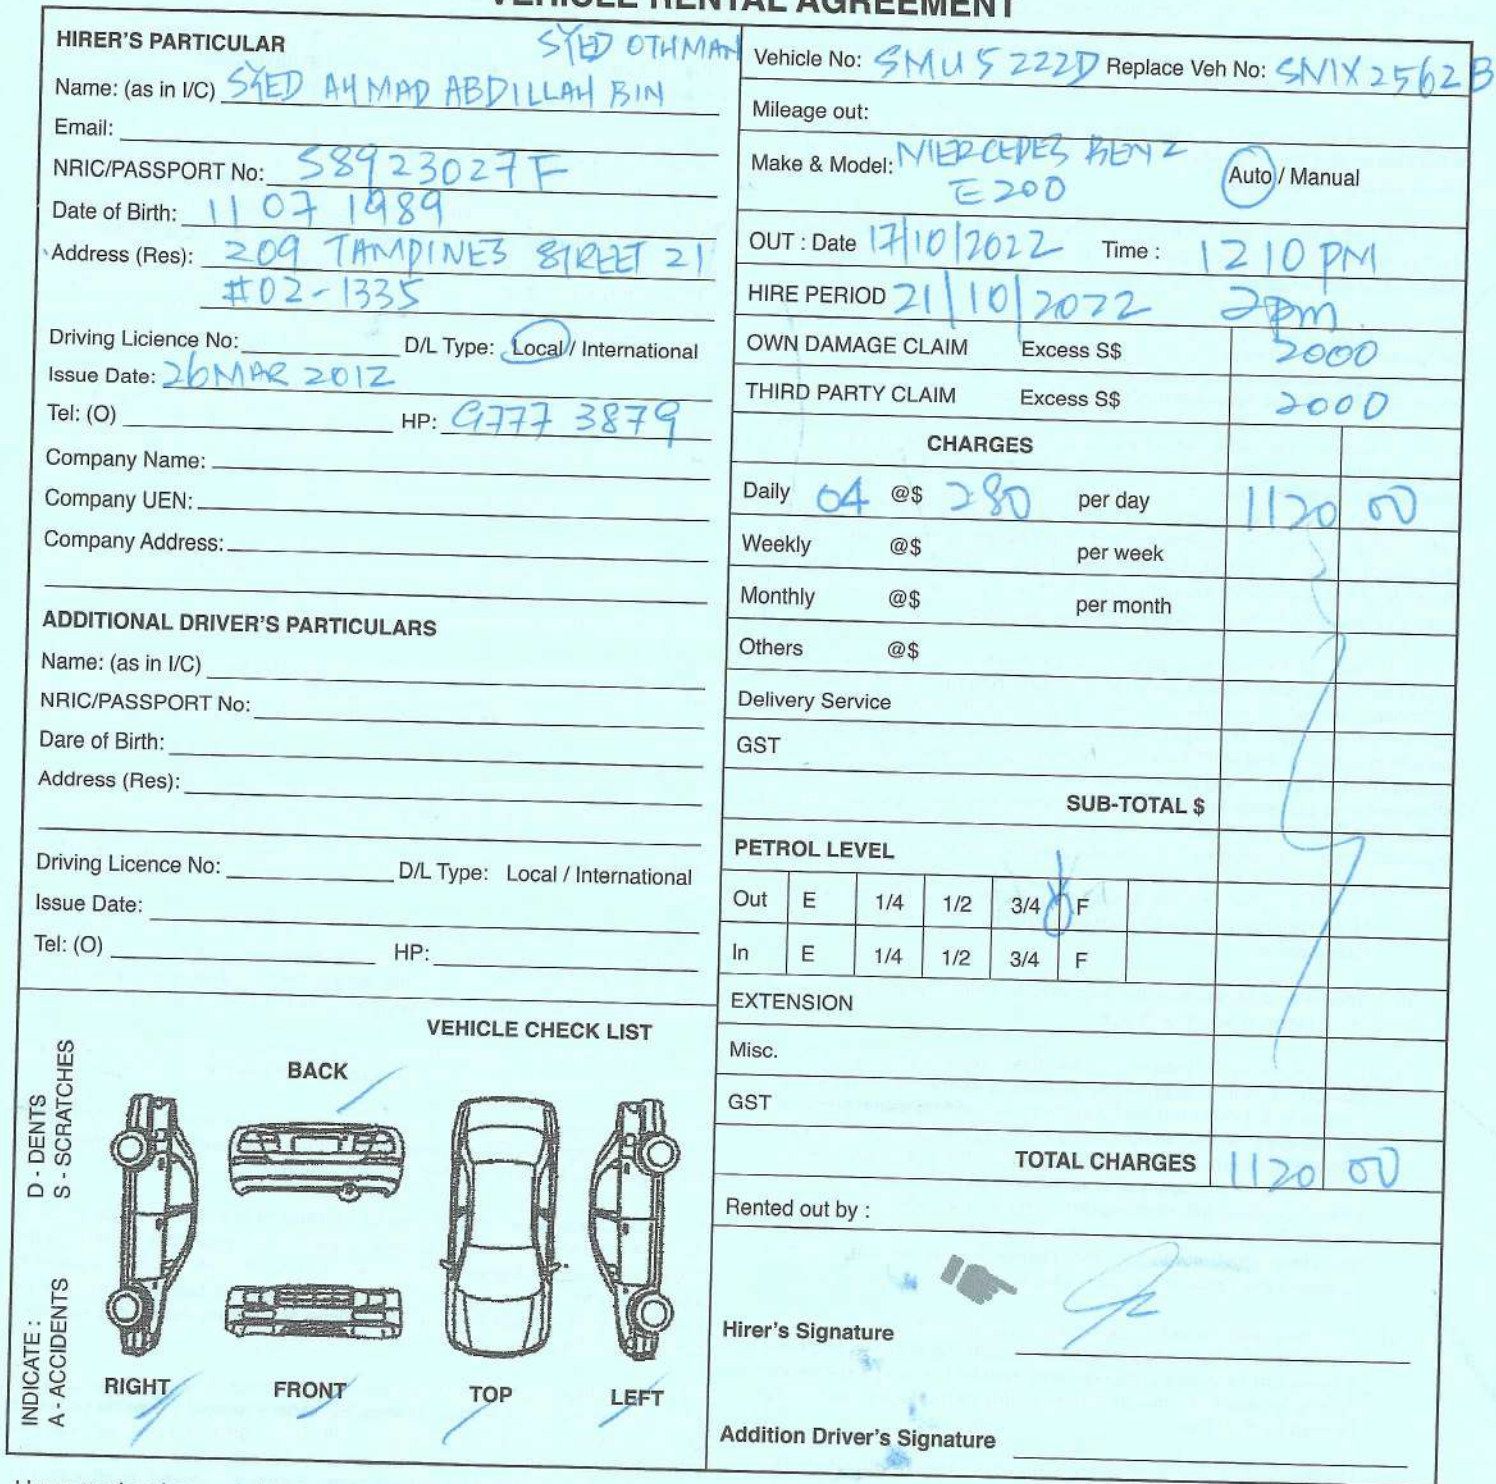 VEHICLE RENTAL AGREEMENT
HIRER'S PARTICULAR
SYED OTHMAN
Name: (as in I/C) SYED AHMAD ABDILLAH BIN
Email:
NRIC/PASSPORT No: S8923027F
Date of Birth: 11 07 1989
Address (Res): 209 TAMPINES STREET 21
#02-1335
Driving Licience No: D/L Type: Local / International
Issue Date: 26 MAR 2012
Tel: (O) HP: 9777 3879
Company Name:
Company UEN:
Company Address:
ADDITIONAL DRIVER'S PARTICULARS
Name: (as in I/C)
NRIC/PASSPORT No:
Dare of Birth:
Address (Res):
Driving Licence No: D/L Type: Local / International
Issue Date:
Tel: (O) HP:
VEHICLE CHECK LIST
D - DENTS
S - SCRATCHES
INDICATE :
A - ACCIDENTS
BACK
RIGHT FRONT TOP LEFT
Vehicle No: SMU 5222D Replace Veh No: SMX 2562B
Mileage out:
Make & Model: MERCEDES BENZ
E200
Auto / Manual
OUT : Date 17/10/2022 Time : 12 10 PM
HIRE PERIOD 21/10/2022 2pm
OWN DAMAGE CLAIM Excess S$ 2000
THIRD PARTY CLAIM Excess S$ 2000
CHARGES
Daily 04 @$ 280 per day 1120 00
Weekly @$ per week
Monthly @$ per month
Others @$
Delivery Service
GST
SUB-TOTAL $
PETROL LEVEL
Out E 1/4 1/2 3/4 F
In E 1/4 1/2 3/4 F
EXTENSION
Misc.
GST
TOTAL CHARGES 1120 00
Rented out by :
Hirer's Signature
Addition Driver's Signature